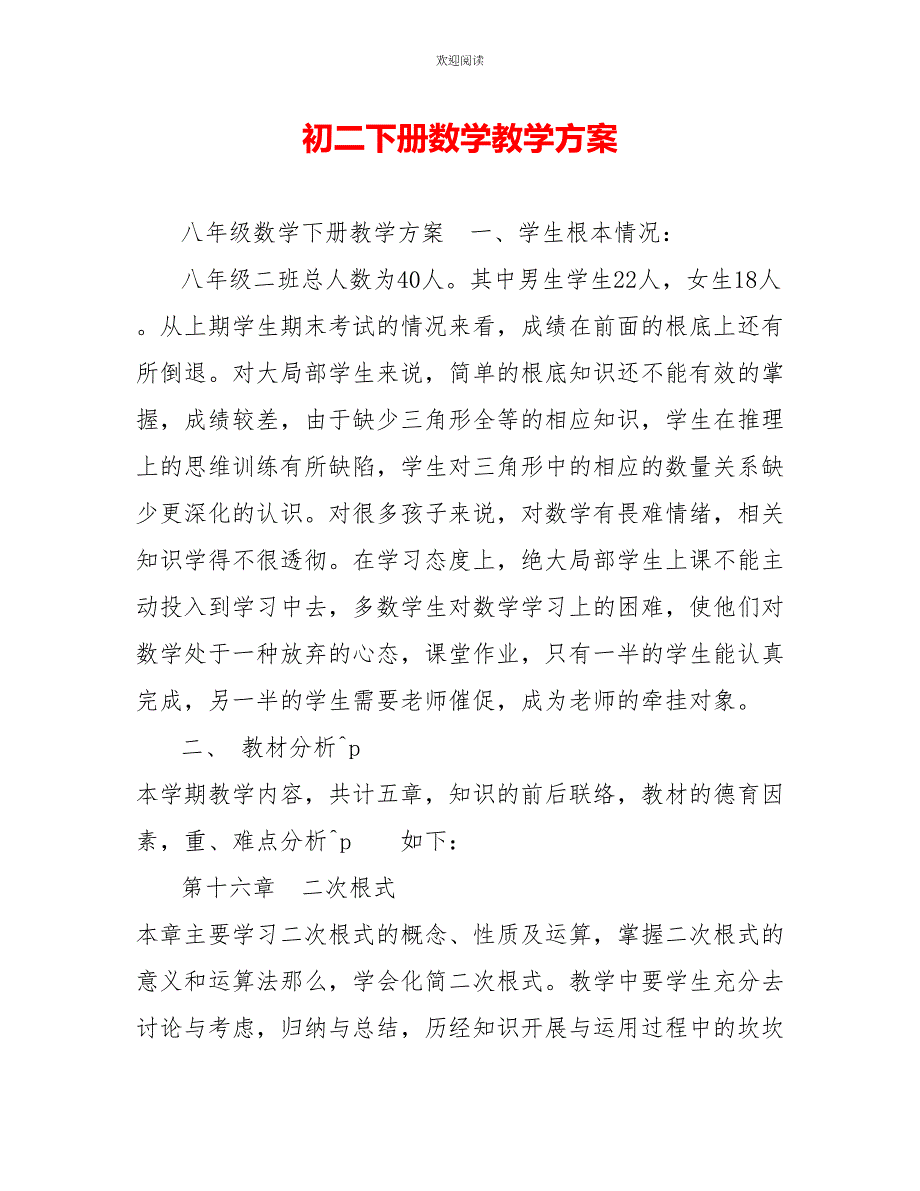 欢迎阅读
初二下册数学教学方案
八年级数学下册教学方案　一、学生根本情况：
八年级二班总人数为40人。其中男生学生22人，女生18人
。从上期学生期末考试的情况来看，成绩在前面的根底上还有
所倒退。对大局部学生来说，简单的根底知识还不能有效的掌
握，成绩较差，由于缺少三角形全等的相应知识，学生在推理
上的思维训练有所缺陷，学生对三角形中的相应的数量关系缺
少更深化的认识。对很多孩子来说，对数学有畏难情绪，相关
知识学得不很透彻。在学习态度上，绝大局部学生上课不能主
动投入到学习中去，多数学生对数学学习上的困难，使他们对
数学处于一种放弃的心态，课堂作业，只有一半的学生能认真
完成，另一半的学生需要老师催促，成为老师的牵挂对象。
二、 教材分析^p
本学期教学内容，共计五章，知识的前后联络，教材的德育因
素，重、难点分析^p　　如下：
第十六章　二次根式
本章主要学习二次根式的概念、性质及运算，掌握二次根式的
意义和运算法那么，学会化简二次根式。教学中要学生充分去
讨论与考虑，归纳与总结，历经知识开展与运用过程中的坎坎